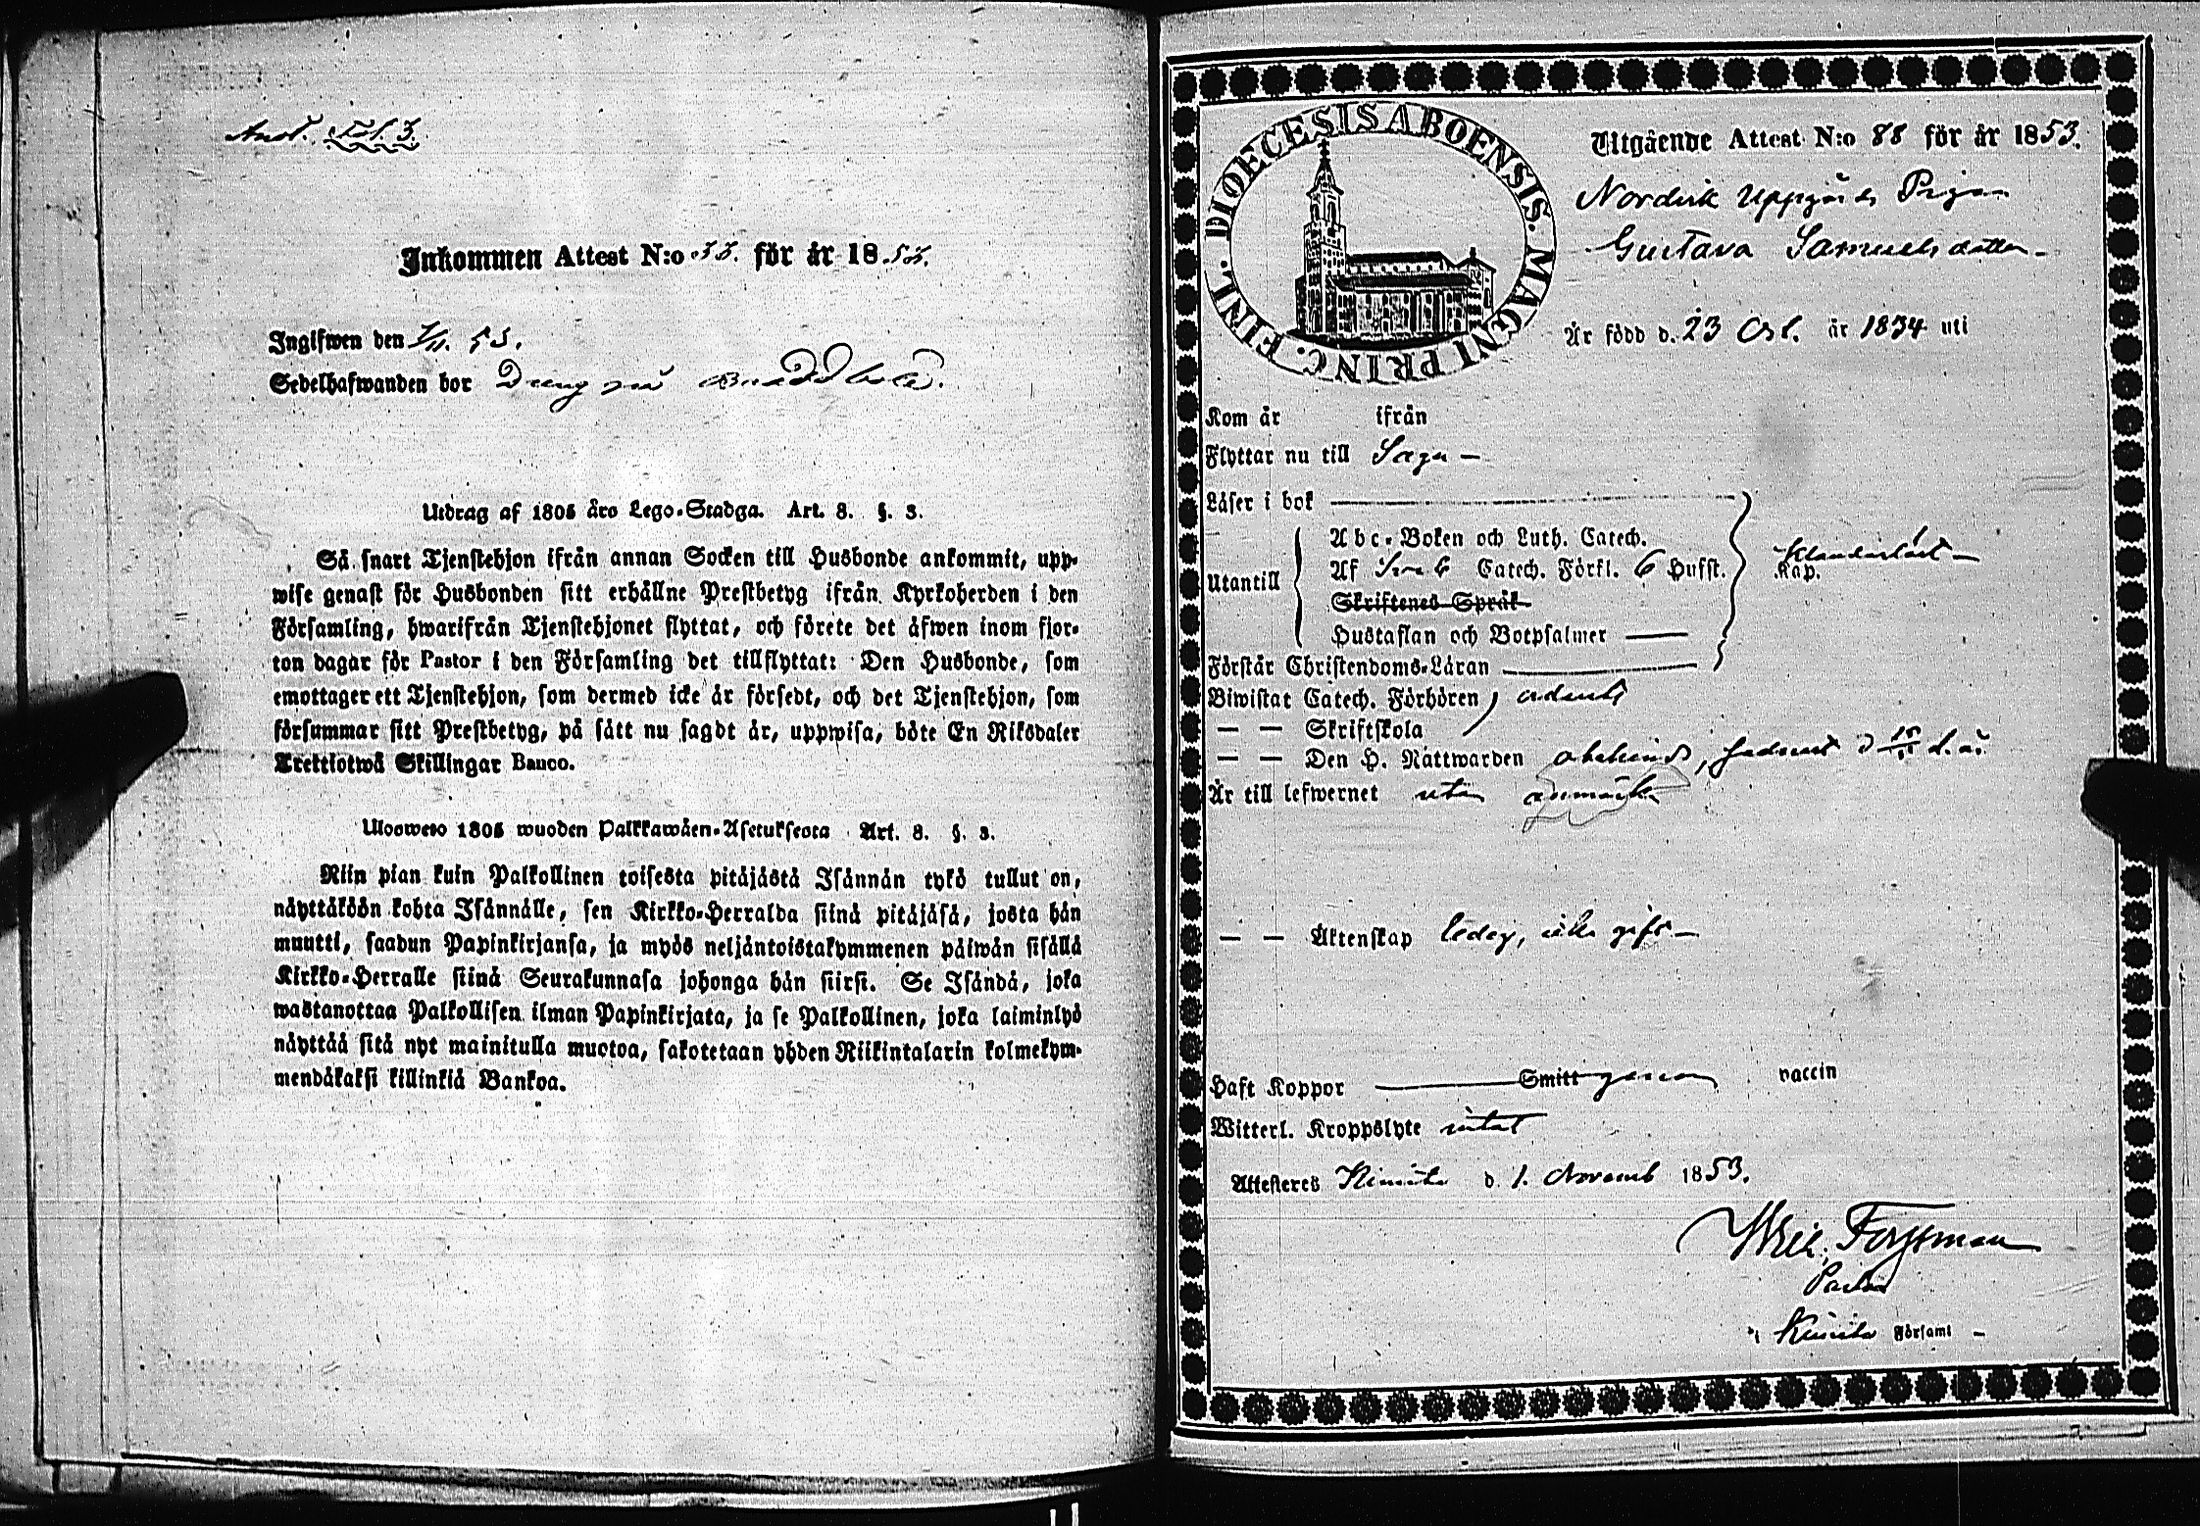 Fol. 3.
Inkommen Attest N:o 33. för år 1853.
Ingifwen den 7/11. 53.
Sedelhafwanden bor Dreng på
Utdrag af 1805 års Lego-Stadga. Art. 8. §. 3.
Så snart Tjenstehjon ifrån annan Socken till Husbonde ankommit, upp-
wise genast för Husbonden sitt erhållne Prestbetyg ifrån Kyrkoherden i den
Församling, hwarifrån Tjenstehjonet flyttat, och förete det äfwen inom fjor-
ton dagar för Pastor i den Församling det tillflyttat: Den Husbonde, som
emottager ett Tjenstehjon, som dermed icke är försedt, och det Tjenstehjon, som
försummar sitt Prestbetyg, på sätt nu sagdt är, uppwisa, böte En Riksdaler
Trettiotwå Skillingar Banco.
Ulosweto 1805 wuoden Palkkawäen-Asetuksesta Art. 8. §. 3.
Niin pian kuin Palkollinen toisesta pitäjästä Isännän tykö tullut on,
näyttäköön kohta Isännälle, sen Kirkko-Herralda siinä pitäjäsä, josta hän
muutti, saadun Papinkirjansa, ja myös neljäntoistakymmenen päiwän sisällä
Kirkko-Herralle siinä Seurakunnasa johonga hän siirsi. Se Isändä, joka
wastanottaa Palkollisen ilman Papinkirjata, ja se Palkollinen, joka laiminlyö
näyttää sitä nyt mainitulla muotoa, sakotetaan yhden Riikintalarin kolmekym-
mendäkaksi killinkiä Bankoa.
FINL. DIOECESIS ABOENSIS. MAGNI PRINC.
Utgående Attest N:o 88 för år 1853.
Nordvik Uppgårds Pigan
Gustava Samuelsdotter
Är född d. 23 Oct. år 1834 uti
Kom år ifrån
Flyttar nu till Sagu
Läser i bok
Utantill
Abc-Boken och Luth. Catech.
Af Catech. Förkl. 6 Hufst.
Kap.
Skriftenes Språk
Hustaflan och Botpsalmer
Förstår Christendoms-Läran
Biwistat Catech. Förhören
— — Skriftskola
— — Den H. Nattwarden obehindr, d. å.
Är till lefwernet utan anmärkn
— — Äktenskap ledig, icke gift
Haft Koppor Smitt genom vaccin
Witterl. Kroppslyte intet
Attesteres Kimito d. 1. Novemb 1853.
Forssman
Pastor
i Kimito Församl